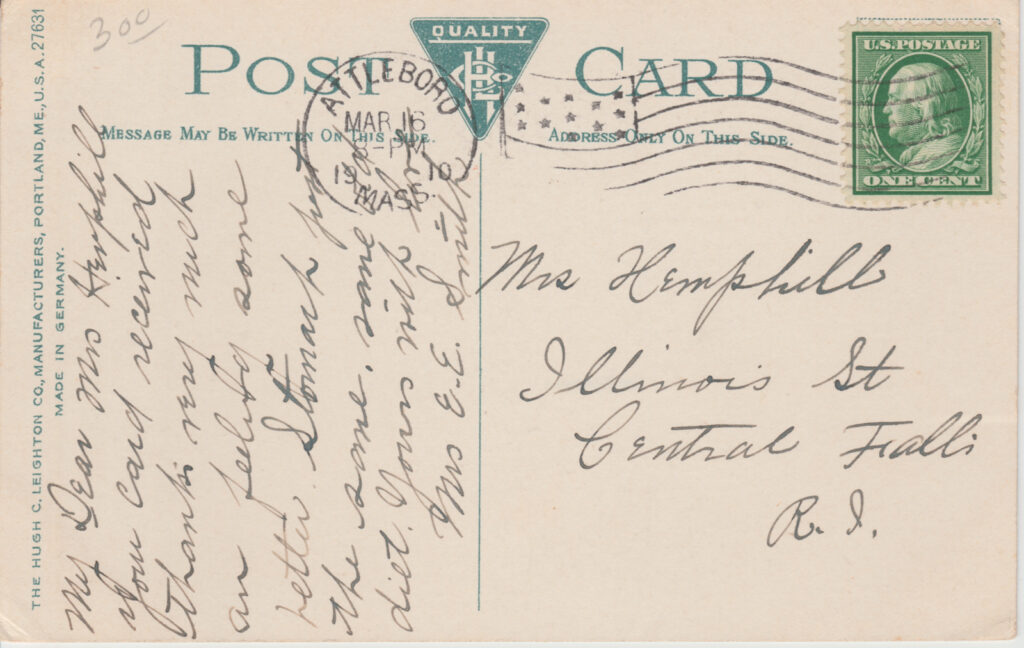 3 00
POST CARD
QUALITY
MESSAGE MAY BE WRITTEN ON THIS SIDE.
ADDRESS ONLY ON THIS SIDE.
ATTLEBORO
MAR 16
-PM
1910
MASS.
U.S. POSTAGE
ONE CENT
THE HUGH C. LEIGHTON CO., MANUFACTURERS, PORTLAND, ME., U.S.A. 27631
MADE IN GERMANY.
My Dear Mrs Hemphill
your card received
thanks very much
am feeling some
better. Stomach just
the same. same old
diet. Yours with love
Mrs E. E. Smith
Mrs Hemphill
Illinois St
Central Falls
R. I.